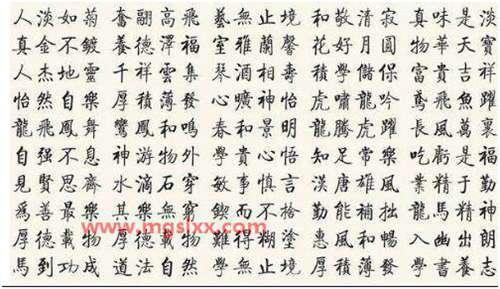 人淡如菊 奮翮高飛 藝無止境 和敬清寂 真味是淡
真金不鍍 養德澤福 室雅蘭馨 花好月圓 物華天寶
人杰地靈 千祥雲集 琴酒相壽 學儲保 富貴吉祥
怡然自樂 厚積薄發 心曠神怡 虎嘯龍吟 鳶飛魚躍
龍飛鳳舞 鸞鳳和鳴 春和景明 龍騰虎躍 長風萬裏
自强不息 神游物外 學貴心悟 知足常樂 吃虧是福
見賢思齊 水滴石穿 敏事慎言 漢唐雄風 業精于勤
爲善最樂 其樂無窮 鍥而不捨 勤能補拙 龍馬精神
厚德載物 厚德載物 難得糊塗 惠風和暢 入幽出朗
馬到功成 道法自然 學無止境 厚積薄發 學書志
www.mqsixx.com